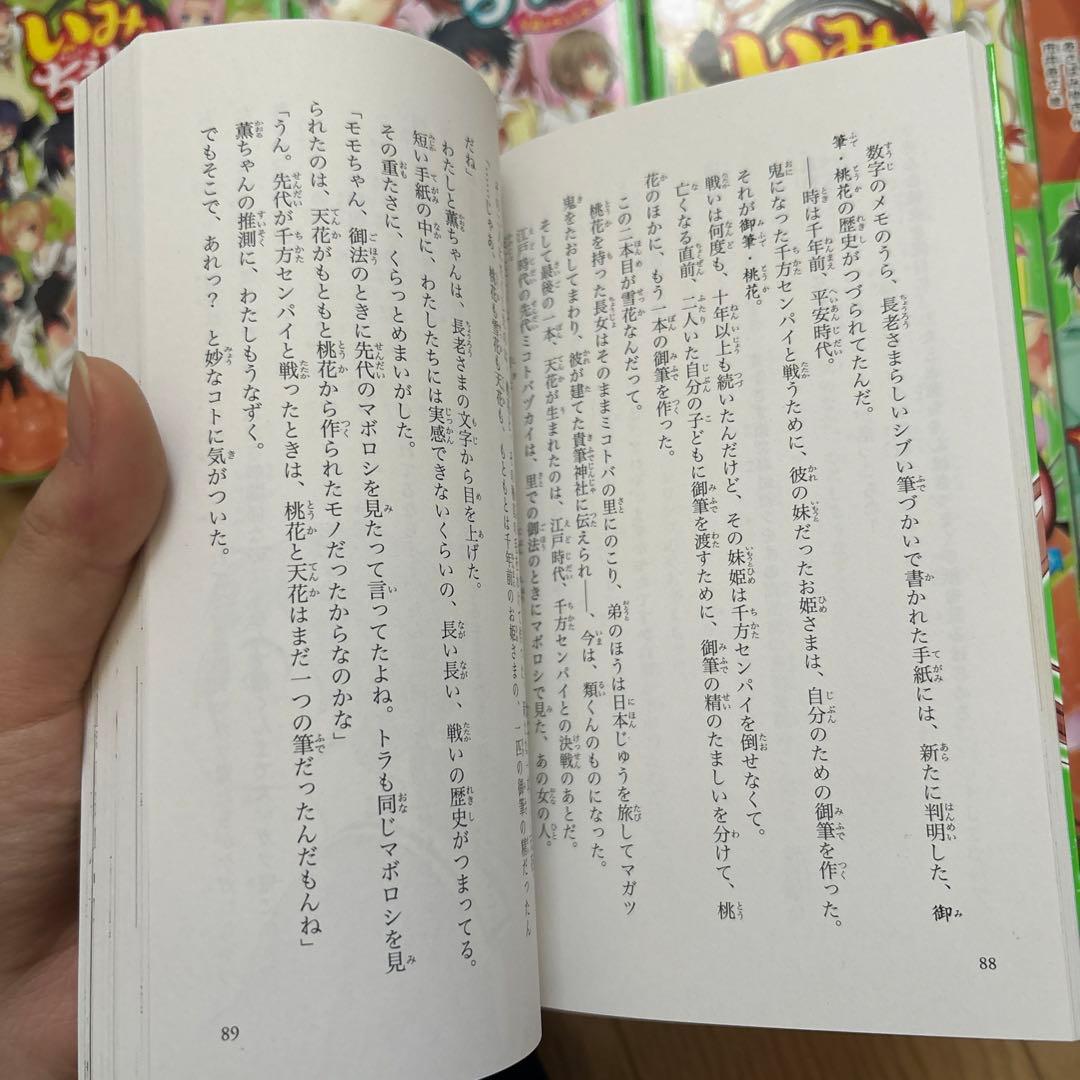 数字のメモのうら、長老さまらしいシブい筆づかいで書かれた手紙には、新たに判明した、御
筆・桃花の歴史がつづられてたんだ。
――時は千年前、平安時代。
鬼になった千方センパイと戦うために、彼の妹だったお姫さまは、自分のための御筆を作った。
それが御筆・桃花。
戦いは何度も、十年以上も続いたんだけど、その妹姫は千方センパイを倒せなくて。
亡くなる直前、二人いた自分の子どもに御筆を渡すために、御筆の精のたましいを分けて、桃
花のほかに、もう一本の御筆を作った。
この二本目が雪花なんだって。
桃花を持った長女はそのままミコトバの里にのこり、弟のほうは日本じゅうを旅してマガツ
鬼をたおしてまわり、彼が建てた貴筆神社に伝えられ――、今は、類くんのものになった。
そして最後の一本、天花が生まれたのは、江戸時代、千方センパイとの決戦のあとだ。
江戸時代の先代ミコトバヅカイは、里での御法のときにマボロシで見た、あの女の人。
88
「……じゃあ、桃花も雪花も天花も、もともとは千年前のお姫さまの、一匹の御筆の精だったん
だね」
わたしと薫ちゃんは、長老さまの文字から目を上げた。
短い手紙の中に、わたしたちには実感できないくらいの、長い長い、戦いの歴史がつまってる。
その重たさに、くらっとめまいがした。
「モモちゃん、御法のときに先代のマボロシを見たって言ってたよね。トラも同じマボロシを見
られたのは、天花がもともと桃花から作られたモノだったからなのかな」
「うん。先代が千方センパイと戦ったときは、桃花と天花はまだ一つの筆だったんだもんね」
薫ちゃんの推測に、わたしもうなずく。
でもそこで、あれっ？　と妙なコトに気がついた。
89
いみ
ちぇ
いみ